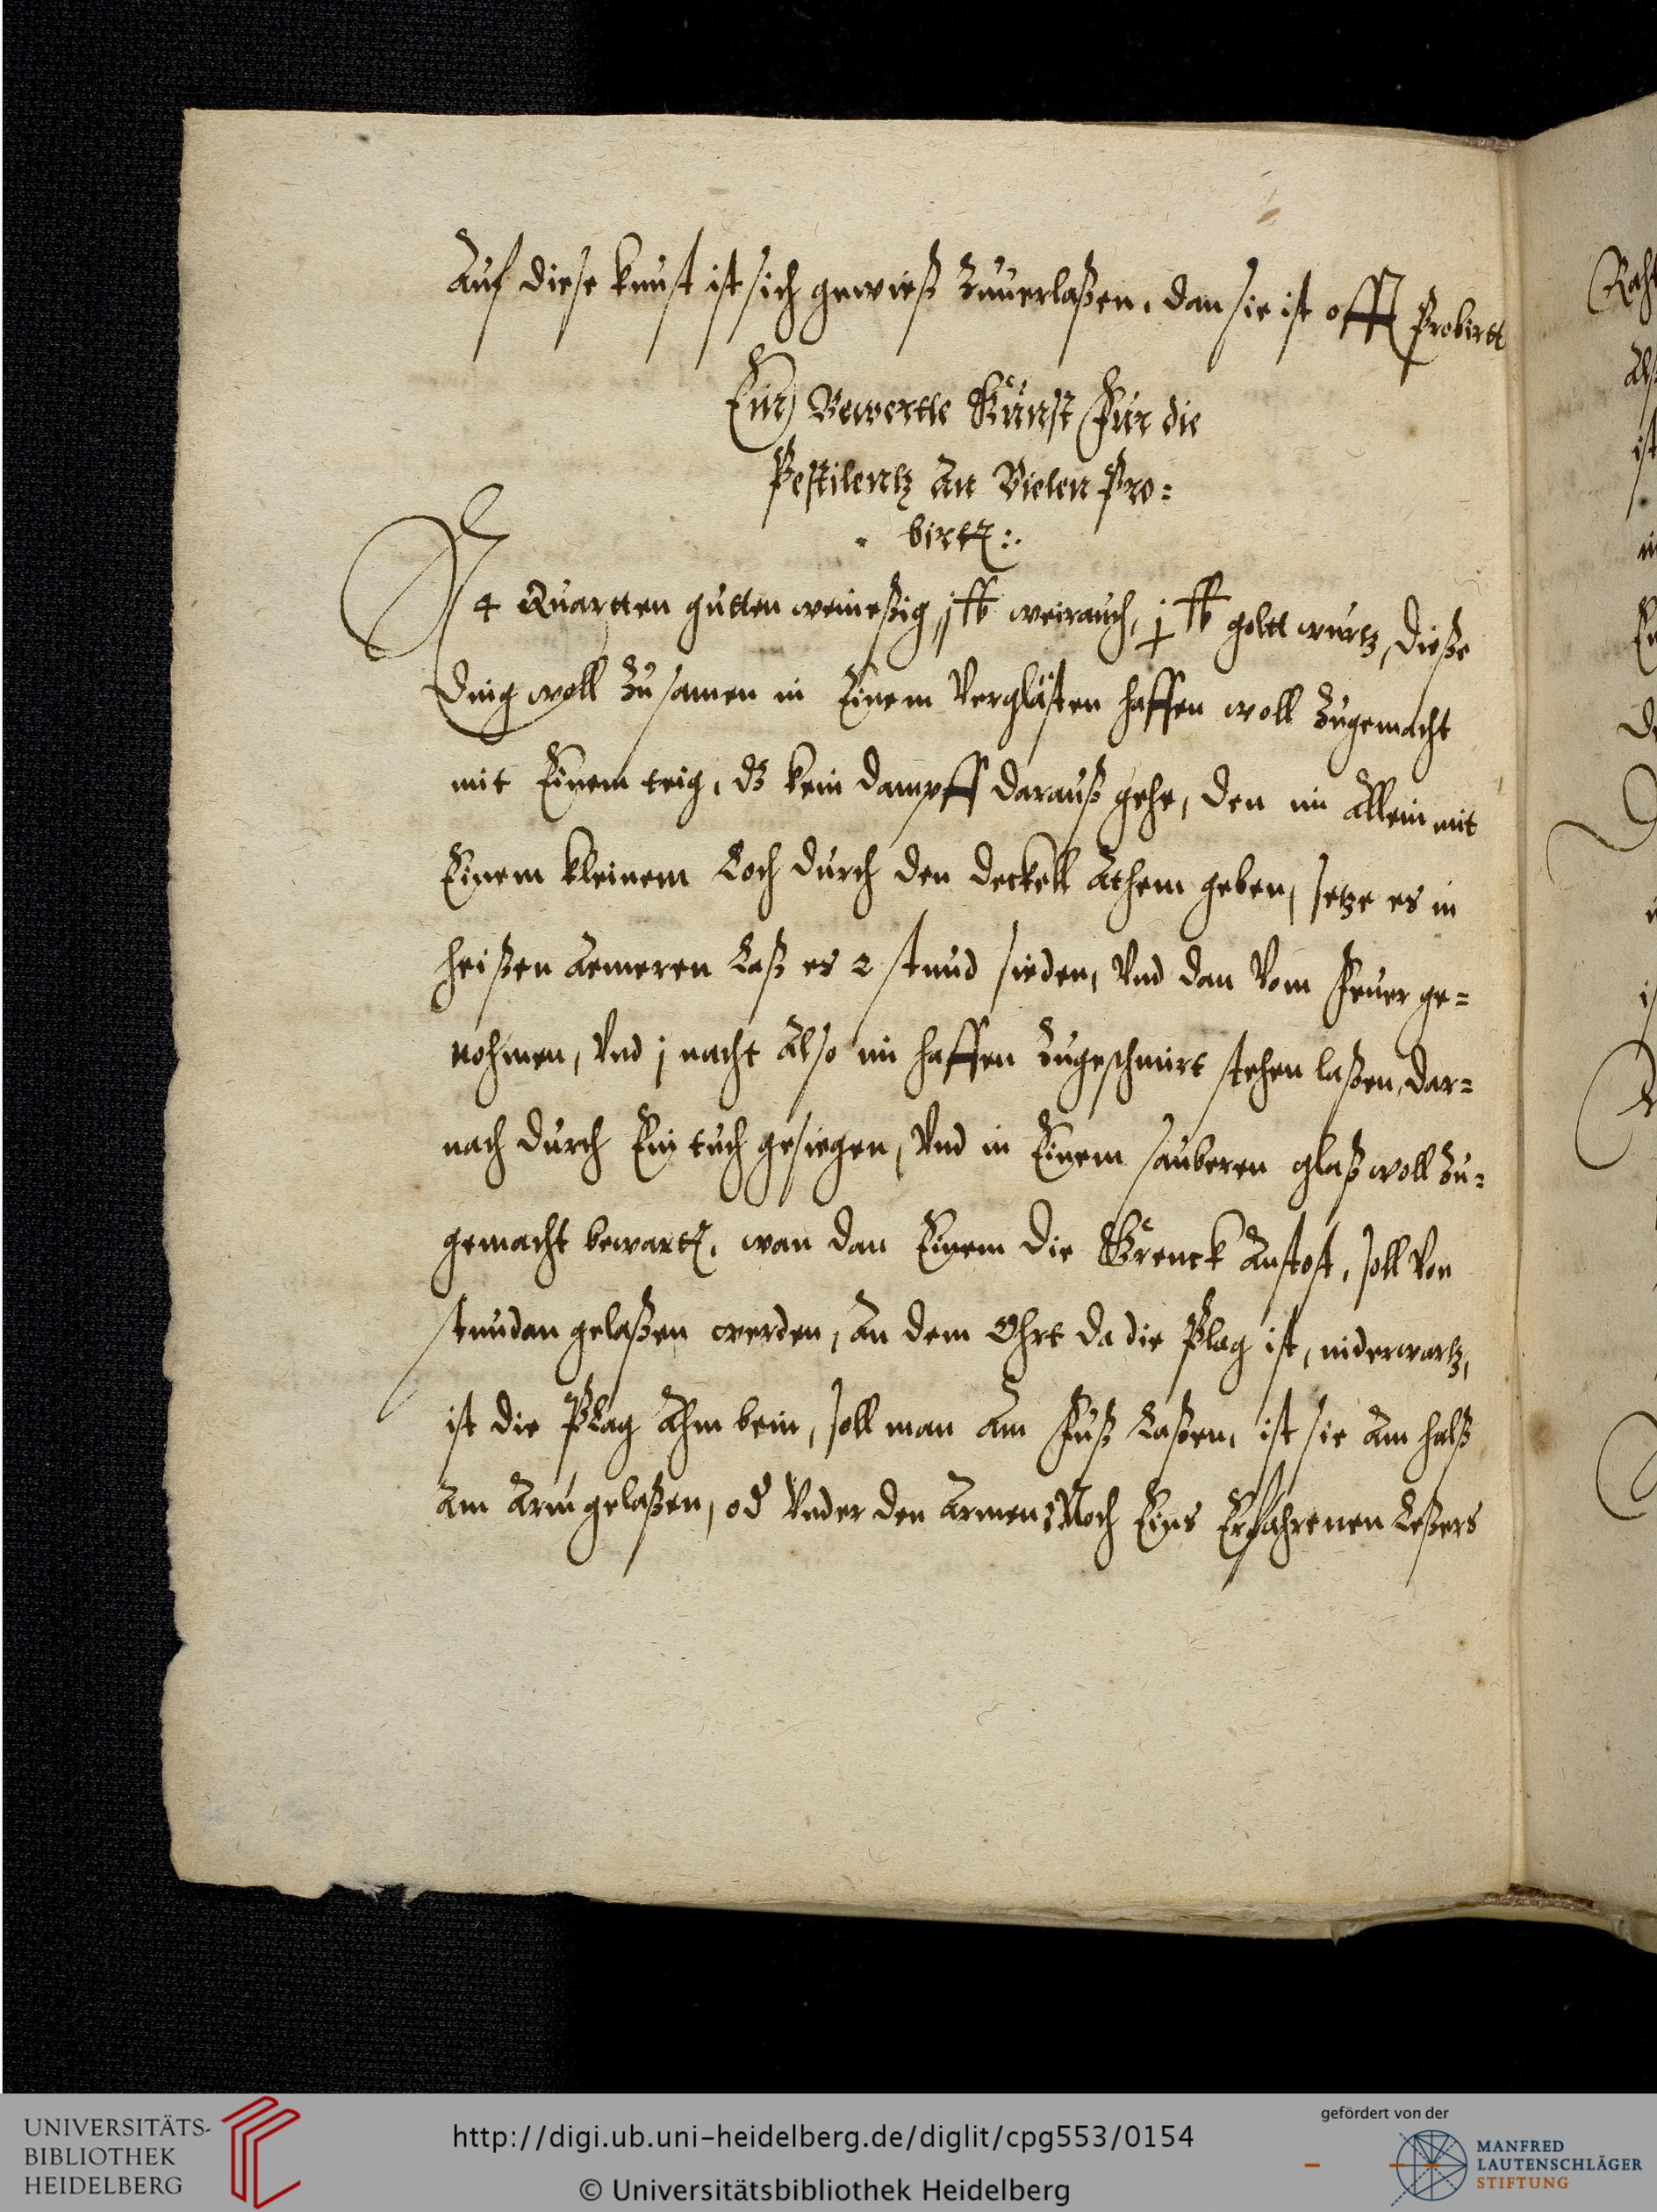 Auf diese kunst ist sich gewieß Zuuerlaßen, dan sie ist offt Probirtt
Ein Bewertte Kunst Für die
Pestilentz An Vielen Pro=
birtt :.
4 Quartten gutten weineßig, j ℔ weirauch, j ℔ goltt wurtz, dieße
ding woll Zusamen in Einem Verglästen haffen woll Zugemacht
mit Einem teig, dz kein dampff darauß gehe, den im Allein mit
Einem kleinem Loch durch den deckell Athem geben, setze es in
heißen Aemeren Laß es 2 stund sieden, Vnd dan Vom Feuer ge=
nohmen, Vnd j nacht Also im haffen Zugeschmirt stehen laßen, dar=
nach durch Ein tuch gesiegen, Vnd in Einem sauberen glaß woll Zu=
gemacht bewartt, wan dan Einem die Krenck Anstost, soll Von
stundan gelaßen werden, An dem Ohrt da die Plag ist, niderwartz,
ist die Plag Ahm bein, soll man Am Fuß Laßen, ist sie Am halß
Am Arm gelaßen, od Vnder den Armen, Noch Eins Erfahrenen Leßers
Als
ist
UNIVERSITÄTS-
BIBLIOTHEK
HEIDELBERG
http://digi.ub.uni-heidelberg.de/diglit/cpg553/0154
© Universitätsbibliothek Heidelberg
gefördert von der
MANFRED
LAUTENSCHLÄGER
STIFTUNG